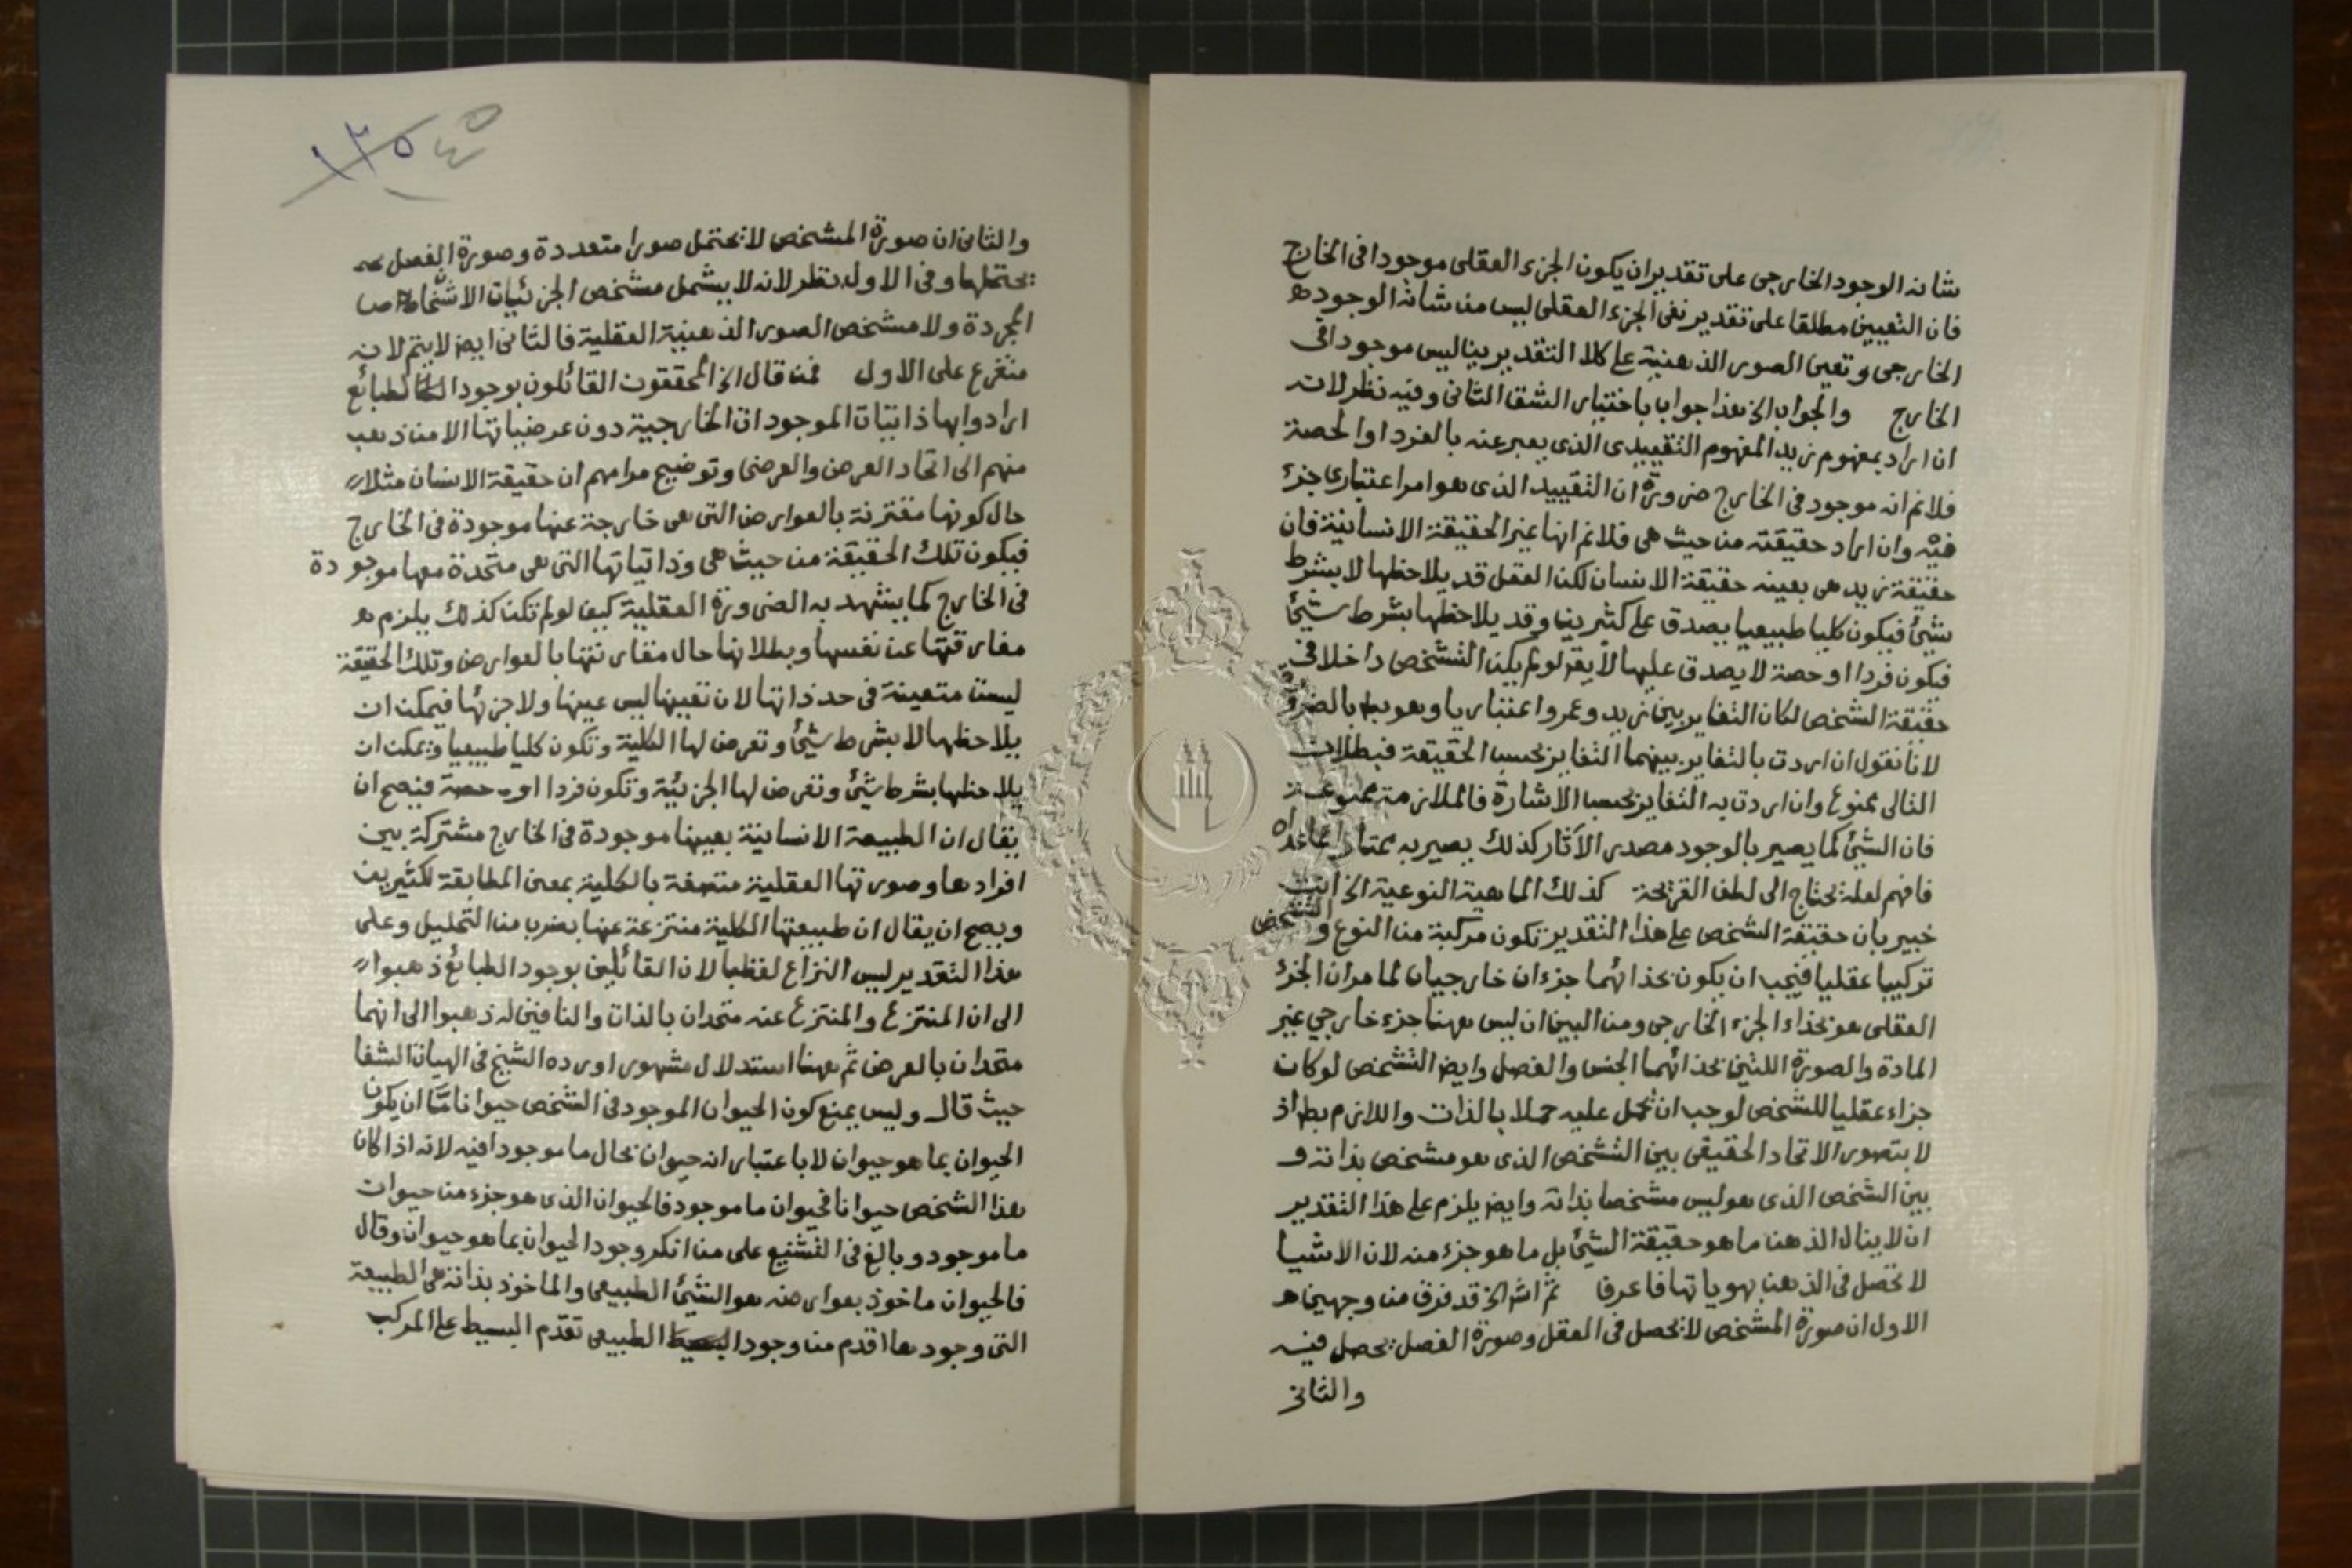 شانه الوجود الخارجى على تقدير ان يكون الجزء العقلى موجودا فى الخارج
فان التعيين مطلقا على تقدير نفى الجزء العقلى ليس من شانه الوجود
الخارجى وتعين الصور الذهنية على كلا التقديرين ليس موجودا فى
الخارج والجواب الخ هذا جواب باختيار الشق الثانى وفيه نظر لانه
ان اراد بمفهوم زيد المفهوم التقييدى الذى يعبر عنه بالفرد او الحصة
فلانم انه موجود فى الخارج ضرورة ان التقييد الذى هو امر اعتبارى جزء
فيه وان اراد حقيقته من حيث هى فلانم انها غير الحقيقة الانسانية فان
حقيقة زيد هى بعينه حقيقة الانسان لكن العقل قد يلاحظها لا بشرط
شيئ فيكون كليا طبيعيا يصدق على كثيرين وقد يلاحظها بشرط شيئ
فيكون فردا او حصة لا يصدق عليها لا يقر لو لم يكن التشخص داخلا فى
حقيقة الشخص لكان التغاير بين زيد وعمرو اعتباريا وهو بط بالضرورة
لانا نقول ان اردت بالتغاير بينهما التغاير بحسب الحقيقة فبطلان
التالى ممنوع وان اردت به التغاير بحسب الاشارة فالملازمة ممنوعة
فان الشيئ كما يصير بالوجود مصدر الآثار كذلك يصير به ممتازا عما عداه
فافهم لعله يحتاج الى لطف القريحة كذلك الماهية النوعية الخ انت
خبير بان حقيقة الشخص على هذا التقدير تكون مركبة من النوع والتشخص
تركيبا عقليا فيجب ان يكون بحذائهما جزءان خارجيان لما مر ان الجزء
العقلى هو بحذاء الجزء الخارجى ومن البين ان ليس ههنا جزء خارجي غير
المادة والصورة اللتين بحذائهما الجنس والفصل وايض التشخص لو كان
جزاء عقليا للشخص لوجب ان تحمل عليه حملا بالذات واللازم بط اذ
لا يتصور الاتحاد الحقيقى بين التشخص الذى هو مشخص بذاته و
بين الشخص الذى هو ليس مشخصا بذاته وايض يلزم على هذا التقدير
ان لا ينال الذهن ما هو حقيقة الشيئ بل ما هو جزء منه لان الاشيا
لا تحصل فى الذهن بهوياتها فاعرفا ثم اش الخ قد فرق من وجهين
الاول ان صورة المشخص لا تحصل فى العقل وصورة الفصل تحصل فيه
والثانى
والثانى ان صورة المشخص لا تحتمل صورا متعددة وصورة الفصل
تحتملها وفى الاول نظر لانه لا يشمل مشخص الجزئيات الاشخاص
المجردة ولا مشخص الصور الذهنية العقلية فالثانى ايض لا يتم لانه
متفرع على الاول فمن قال الخ المحققون القائلون بوجود الطبائع
ارادوا بها ذاتيات الموجودات الخارجية دون عرضياتها الا من ذهب
منهم الى اتحاد العرض والعرضى وتوضيح مرامهم ان حقيقة الانسان مثلا
حال كونها مقترنة بالعوارض التى هى خارجة عنها موجودة فى الخارج
فيكون تلك الحقيقة من حيث هى وذاتياتها التى هى متحدة معها موجودة
فى الخارج كما يشهد به الضرورة العقلية كيف لو لم تكن كذلك يلزم
مفارقتها عن نفسها وبطلانها حال مقارنتها بالعوارض وتلك الحقيقة
ليست متعينة فى حد ذاتها لان تعينها ليس عينها ولا جزئها فيمكن ان
يلاحظها لا بشرط شيئ وتعرض لها الكلية وتكون كليا طبيعيا ويمكن ان
يلاحظها بشرط شيئ وتعرض لها الجزئية وتكون فردا او حصة فيصح ان
يقال ان الطبيعة الانسانية بعينها موجودة فى الخارج مشتركة بين
افرادها وصورتها العقلية متصفة بالكلية بمعنى المطابقة لكثيرين
ويصح ان يقال ان طبيعتها الكلية منتزعة عنها بضرب من التحليل وعلى
هذا التقدير ليس النزاع لفظيا لان القائلين بوجود الطبائع ذهبوا
الى ان المنتزع والمنتزع عنه متحدان بالذات والنافين له ذهبوا الى انهما
متحدان بالعرض ثم ههنا استدلال مشهور اورده الشيخ فى الهيات الشفا
حيث قال وليس يمنع كون الحيوان الموجود فى الشخص حيوانا مّا ان يكون
الحيوان بما هو حيوان لا باعتبار انه حيوان بحال ما موجودا فيه لانه اذا كان
هذا الشخص حيوانا فحيوان ما موجود فالحيوان الذى هو جزء من حيوان
ما موجود وبالغ فى التشنيع على من انكر وجود الحيوان بما هو حيوان وقال
فالحيوان ماخوذ بعوارضه هو الشيئ الطبيعى والماخوذ بذاته هى الطبيعة
التى وجودها اقدم من وجود الطبيعى تقدم البسيط على المركب